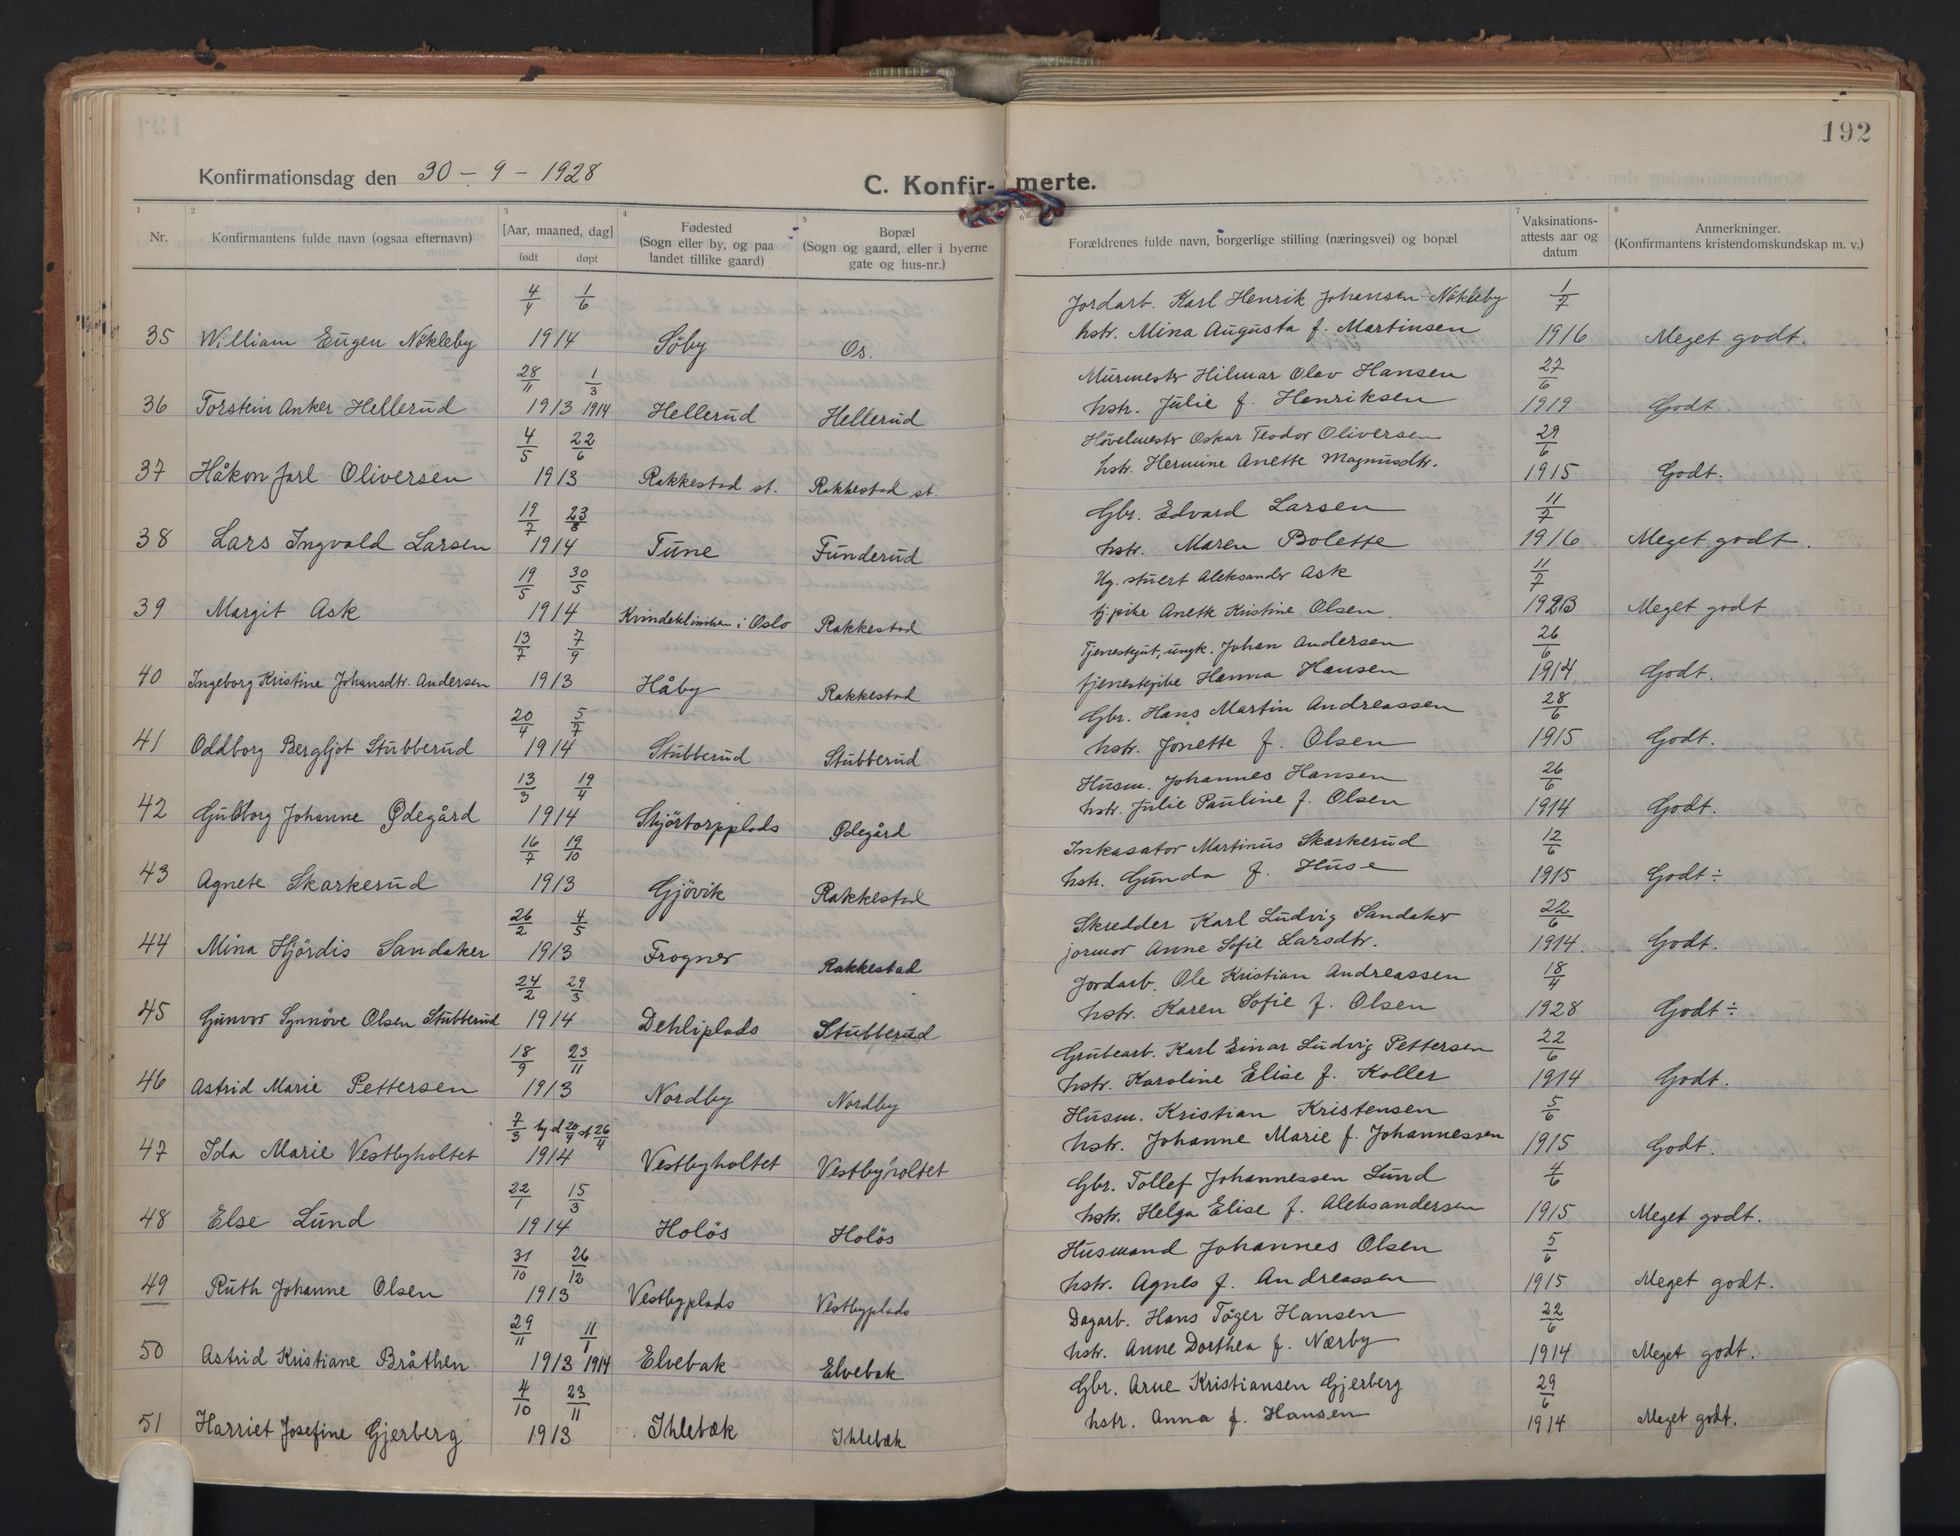 192
Konfirmationsdag den 30 - 9 - 1928
C. Konfir- merte.
1 2 3 4 5 6 7 8
Nr.
Konfirmantens fulde navn (ogsaa efternavn)
[Aar, maaned, dag]
født døpt
Fødested
(Sogn eller by, og paa
landet tillike gaard)
Bopæl
(Sogn og gaard, eller i byerne
gate og hus-nr.)
Forældrenes fulde navn, borgerlige stilling (næringsvei) og bopæl
Vaksinations-
attests aar og
datum
Anmerkninger.
(Konfirmantens kristendomskundskap m. v.)
4/4 1/6 Jordarb. Karl Henrik Johansen Nökleby 1/7
35 William Eugen Nökleby 1914 Söby Os. hstr. Mina Augusta f. Martinsen 1916 Meget godt.
28/11 1/3 Murmestr Hilmar Olav Hansen 27/6
36 Torstein Anker Hellerud 1913 1914 Hellerud Hellerud hstr. Julie f. Henriksen 1919 Godt.
4/5 22/6 Hövelmestr Oskar Teodor Oliversen 29/6
37 Håkon Jarl Oliversen 1913 Rakkestad st. Rakkestad st. hstr. Hermine Anette Magnusdtr. 1915 Godt.
19/7 23/8 Gbr. Edvard Larsen 11/7
38 Lars Ingvald Larsen 1914 Tune Funderud hstr. Maren Bolette 1916 Meget godt.
19/5 30/5 Ug. stuert Aleksander Ask 11/7
39 Margit Ask 1914 Kvindeklinikken i Oslo Rakkestad tj.pike Anette Kristine Olsen Meget godt
13/7 7/9 Tjenestegut, ungk. Johan Andersen 26/6
40 Ingeborg Kristine Johansdtr. Andersen 1913 Håby Rakkestad tjenestepike Hanna Hansen 1914 Godt.
20/4 5/7 Gbr. Hans Martin Andreassen 28/6
41 Oddborg Bergljot Stubberud 1914 Stubberud Stubberud hstr. Jonette f. Olsen 1915 Godt.
13/3 19/4 Husm. Johannes Hansen 26/6
42 Gudborg Johanne Ødegård 1914 Skjörtorpplads Ødegård hstr. Julie Pauline f. Olsen 1914 Godt.
16/7 19/10 Inkasator Martinus Skarkerud 12/6
43 Agnete Skarkerud 1913 Gjövik Rakkestad hstr. Gunda f. Huse 1915 Godt ÷
26/2 4/5 Skredder Karl Ludvig Sandaker 22/6
44 Mina Hjördis Sandaker 1913 Frogner Rakkestad jormor Anne Sofie Larsdtr. 1914. Godt.
24/2 29/3 Jordarb. Ole Kristian Andreassen 18/4
45 Gunvor Synnöve Olsen Stubberud 1914 Dehliplads Stubberud hstr. Karen Sofie f. Olsen 1928 Godt ÷
18/9 23/11 Grubearb. Karl Einar Ludvig Pettersen 22/6
46 Astrid Marie Pettersen 1913 Nordby Nordby hstr. Karoline Elise f. Koller 1914 Godt.
7/3 hj d 20/4 st 26/4 Husm. Kristian Kristensen 5/6
47 Ida Marie Vestbyholtet 1914 Vestbyholtet Vestbyholtet hstr. Johanne Marie f. Johannessen 1915 Godt.
22/1 15/3 Gbr. Tollef Johannessen Lund 4/6
48 Else Lund 1914 Holös Holös hstr. Helga Elise f. Aleksandersen 1915 Meget godt.
31/10 26/12 Husmand Johannes Olsen 5/6
49 Ruth Johanne Olsen 1913 Vestbyplads Vestbyplads hstr. Agnes f. Andreassen 1915 Meget godt.
29/11 11/1 Dagarb. Hans Töger Hansen 22/6
50 Astrid Kristiane Bråthen 1913 1914 Elvebak Elvebak hstr. Anne Dorthea f. Nærby 1914 Meget godt.
4/10 23/11 Gbr. Arne Kristiansen Gjerberg 29/6
51 Harriet Josefine Gjerberg 1913 Ihlebæk Ihlebæk hstr. Anna f. Hansen 1914 Meget godt.